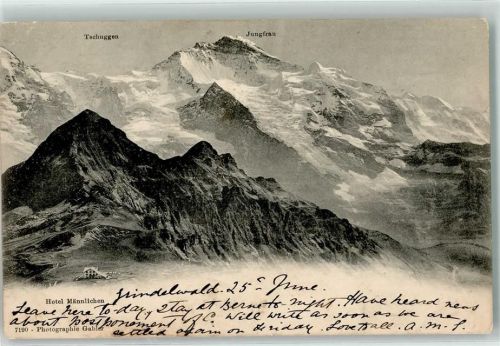 Tschuggen
Jungfrau
Hotel Männlichen
Grindelwald 25th June.
Leave here to day, stay at Berne to-night. Have heard news
about postponement of C. Will write as soon as we are
7190 - Photographie Gabler
settled again on Friday. Love to all. A. M. S.